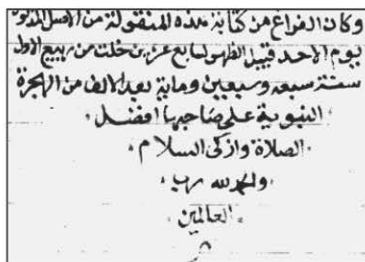 وكان الفراغ من كتابة هذه المنقولة من الاصل المذكور
ليوم الاحد قبيل الظهر لسابع عشرين خلت من ربيع الاول
سنة سبعه وسبعين وماية بعد الالف من الهجرة
النبوية على صاحبها افضل
الصلاة وازكى السلام
والحمد لله رب
العالمين